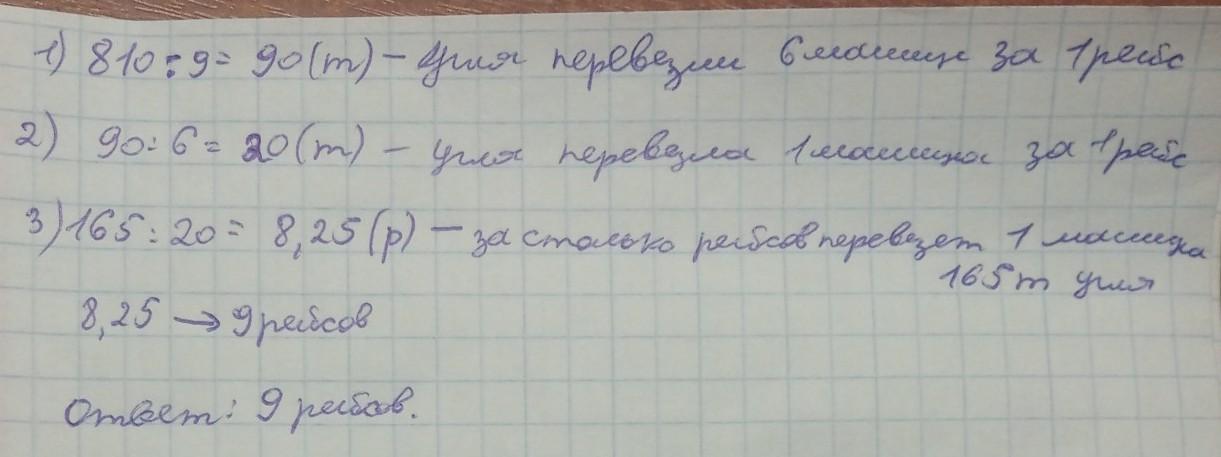 1) 810:9= 90(т) – Угля перевезли 6 машин за 1 рейс
2) 90:6= 20(т) – угля перевезла 1 машина за 1 рейс
3) 165:20= 8,25(р) – за столько рейсов перевезет 1 машина
165т угля
8,25 → 9 рейсов
Ответ: 9 рейсов.